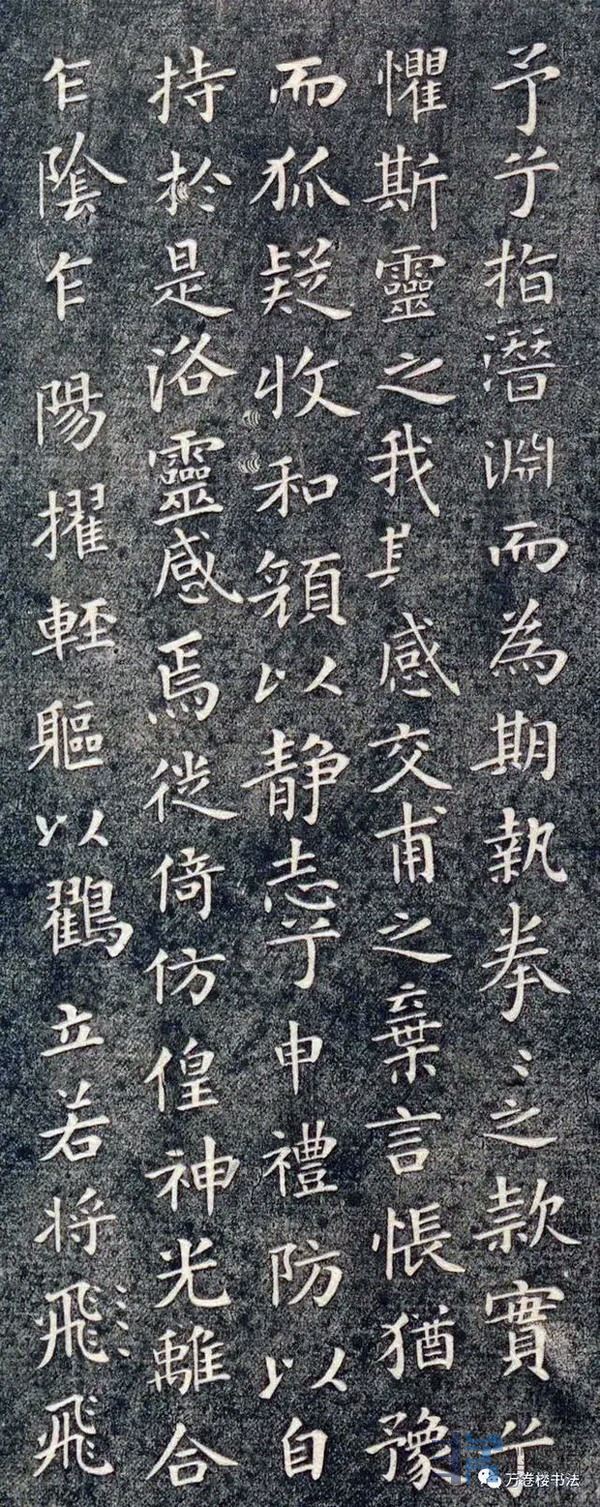 予兮指潛淵而為期執拳〻之款實兮
懼斯靈之我其感交甫之棄言悵猶豫
而狐疑收和顏以静志兮申禮防以自
持於是洛靈感焉徙倚仿偟神光離合
乍陰乍陽擢輕軀以鶴立若將飛飛
万卷楼书法